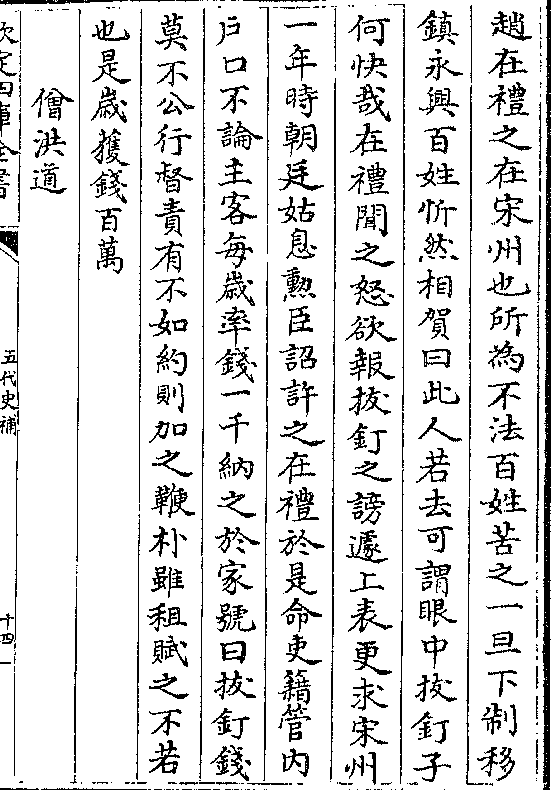 趙在禮之在宋州也所為不法百姓苦之一旦下制移
鎮永興百姓忻然相賀曰此人若去可謂眼中拔釘子
何快哉在禮聞之怒欲報拔釘之謗遽上表更求宋州
一年時朝廷姑息勲臣詔許之在禮於是命吏籍管内
户口不論主客每歲率錢一千納之於家號曰拔釘錢
莫不公行督責有不如約則加之鞭朴雖租賦之不若
也是歲獲錢百萬
僧洪道
欽定四庫全書
五代史補
十四